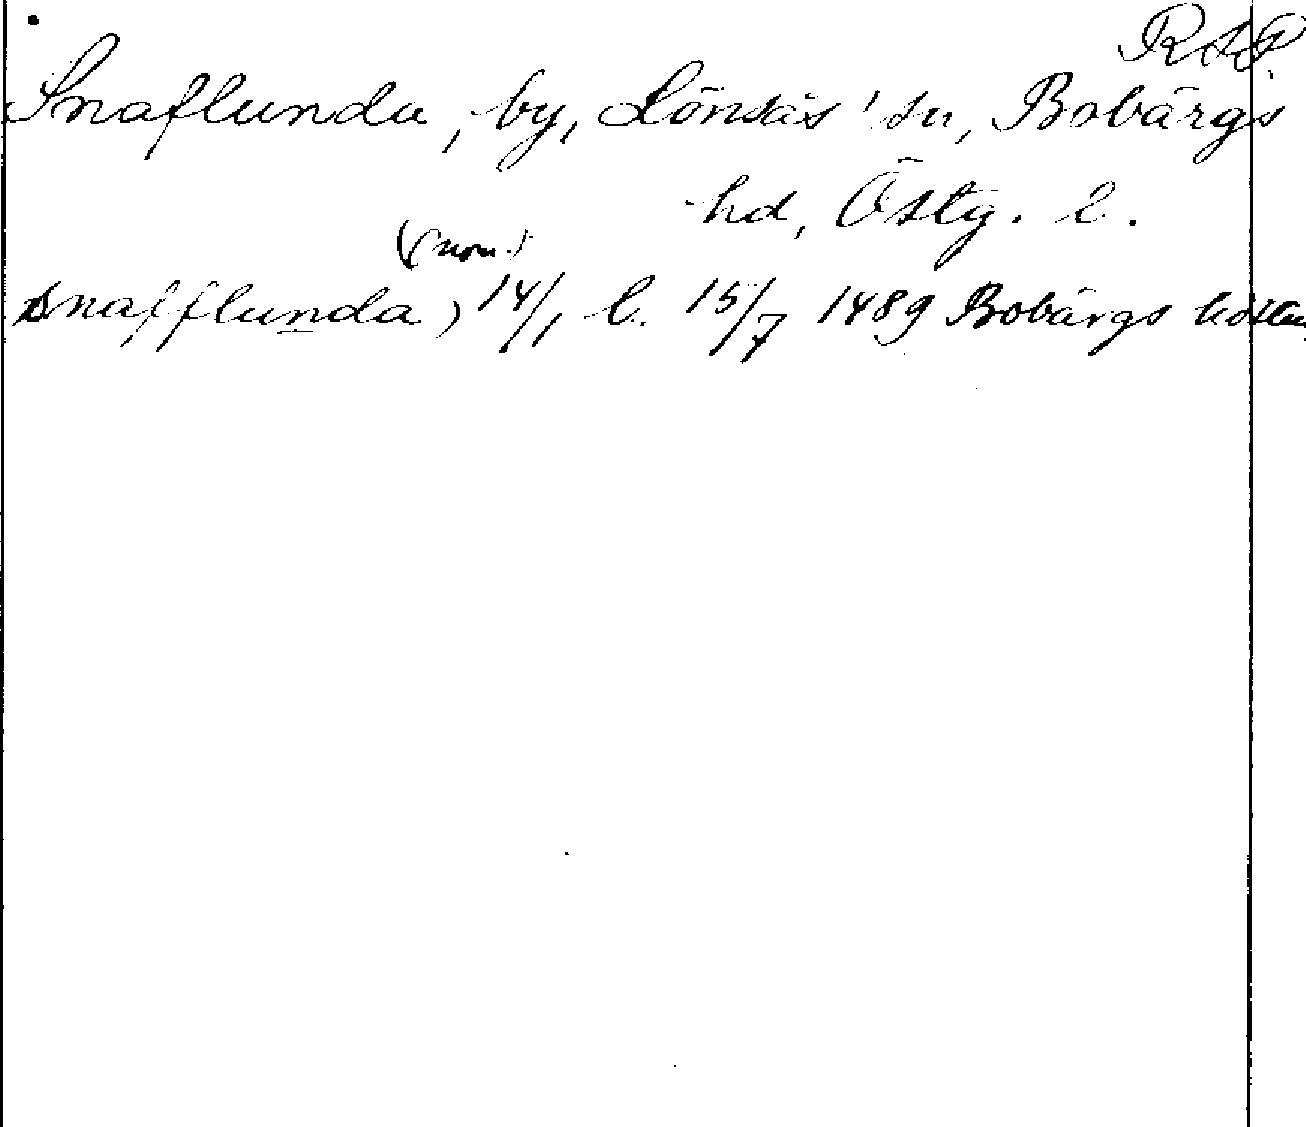 Snaflunda, by, Lönsås' sn, Bobärgs
hd, Östg. l.
(nom.)
snafflunda, 14/1 l. 15/7 1489 Bobärgs